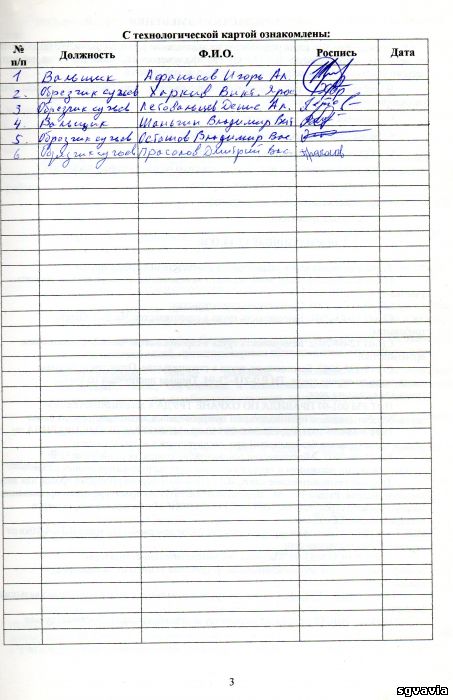 С технологической картой ознакомлены:
№ п/п Должность Ф.И.О. Роспись Дата
1 Вальщик Афанасов Игорь Ал.
2. Обрезчик сучьев Харкив Викт. Ярос
3 Обрезчик сучьев Денис Ал.
4 Вальщик Шаньгин Владимир Вит
5 Обрезчик сучьев Осташов Владимир Вас.
6 Обрезчик сучьев Прасолов Дмитрий Вас. Прасолов
3
sgvavia